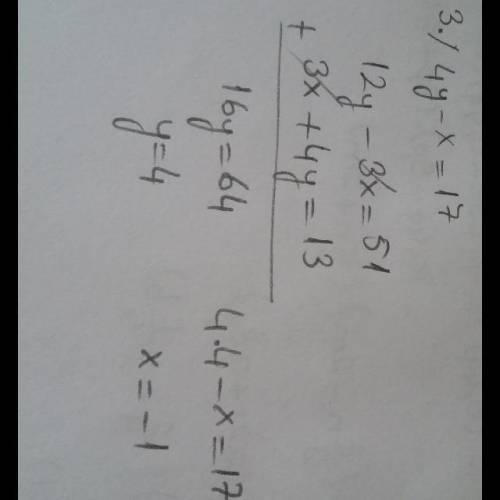 3./ 4y - x = 17
12y - 3x = 51
+ 3x + 4y = 13
16y = 64
y = 4
4·4 - x = 17
x = -1